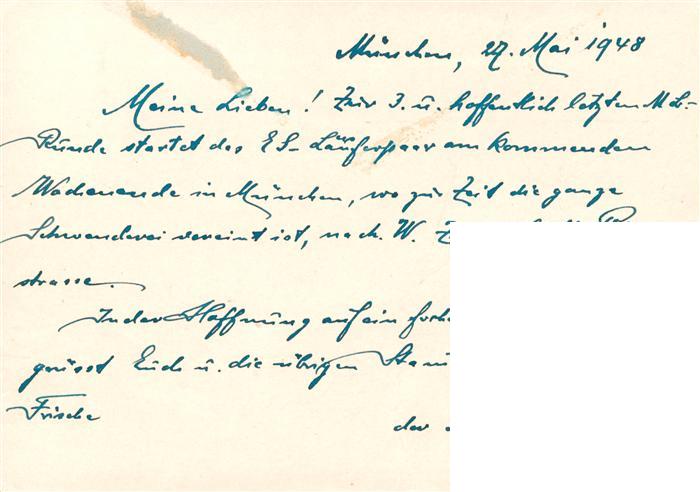 München, 27. Mai 1948
Meine Lieben! Zur 3. u. hoffentlich letzten ML-
Runde startet das ES- Läuferpaar am kommenden
Wochenende in München, wo zur Zeit die ganze
Schwenderei vereint ist, nach W.
strasse.
In der Hoffnung auf ein
grüsst Euch u. die übrigen
Frische
der